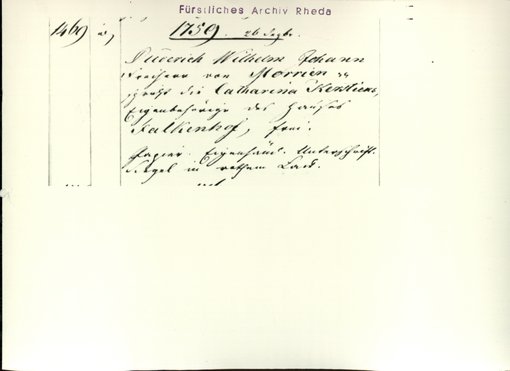 Fürstliches Archiv Rheda
1469 1759. 26 Sept.
Diderich Wilhelm Johann
Freiherr von Morrien
die Catharina Kerstiens,
Eigenbehörige des Hauses
Falkenhof, frei.
Papier. Eigenhänd. Unterschrift.
Siegel in rothem Lack.